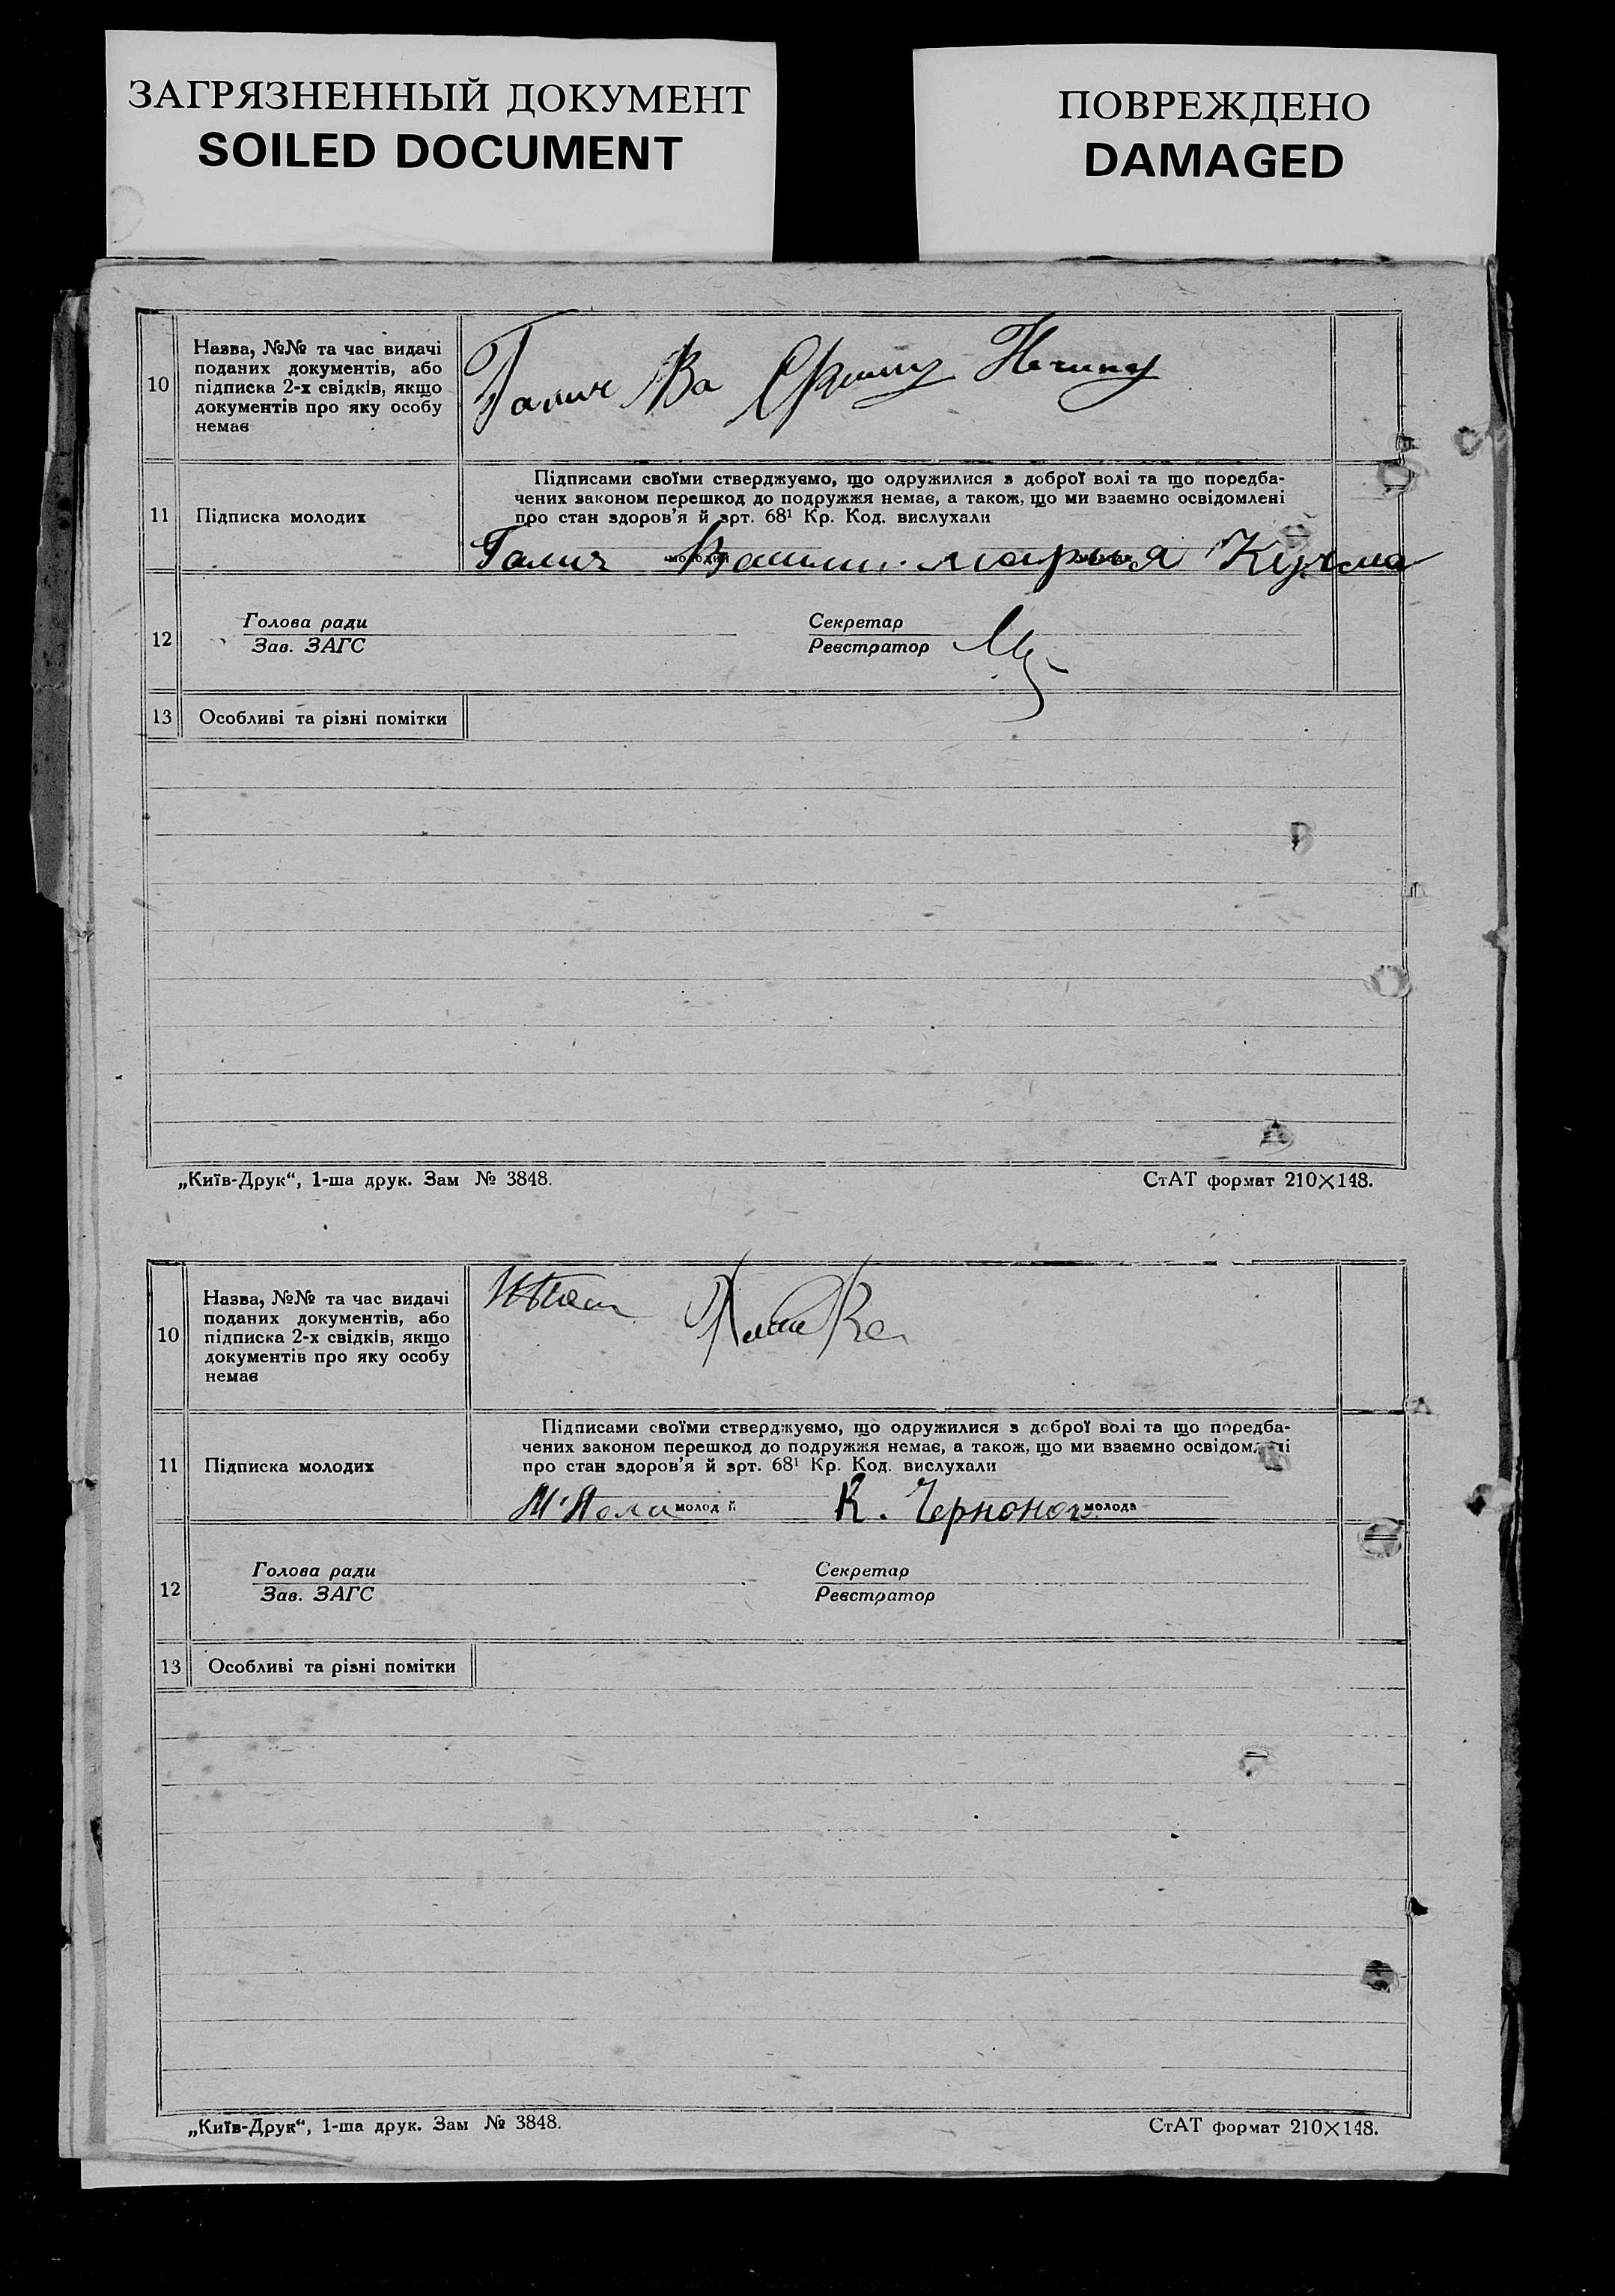 ЗАГРЯЗНЕННЫЙ ДОКУМЕНТ
SOILED DOCUMENT
ПОВРЕЖДЕНО
DAMAGED
10
Назва, №№ та час видачі
поданих документів, або
підписка 2-х свідків, якщо
документів про яку особу
немає
Галич Ва
11
Підписка молодих
Підписами своїми стверджуємо, що одружилися з доброї волі та що передба-
чених законом перешкод до подружжя немає, а також, що ми взаємно освідомлені
про стан здоров'я й арт. 68¹ Кр. Код. вислухали
Галич марыя Кучма
молодий
12
Голова ради
Зав. ЗАГС
Секретар
Реєстратор
13
Особливі та різні помітки
„Київ-Друк“, 1-ша друк. Зам № 3848.
СтАТ формат 210×148.
10
Назва, №№ та час видачі
поданих документів, або
підписка 2-х свідків, якщо
документів про яку особу
немає
11
Підписка молодих
Підписами своїми стверджуємо, що одружилися з доброї волі та що передба-
чених законом перешкод до подружжя немає, а також, що ми взаємно освідомлені
про стан здоров'я й арт. 68¹ Кр. Код. вислухали
молодий К. Черноног молода
12
Голова ради
Зав. ЗАГС
Секретар
Реєстратор
13
Особливі та різні помітки
„Київ-Друк“, 1-ша друк. Зам № 3848.
СтАТ формат 210×148.